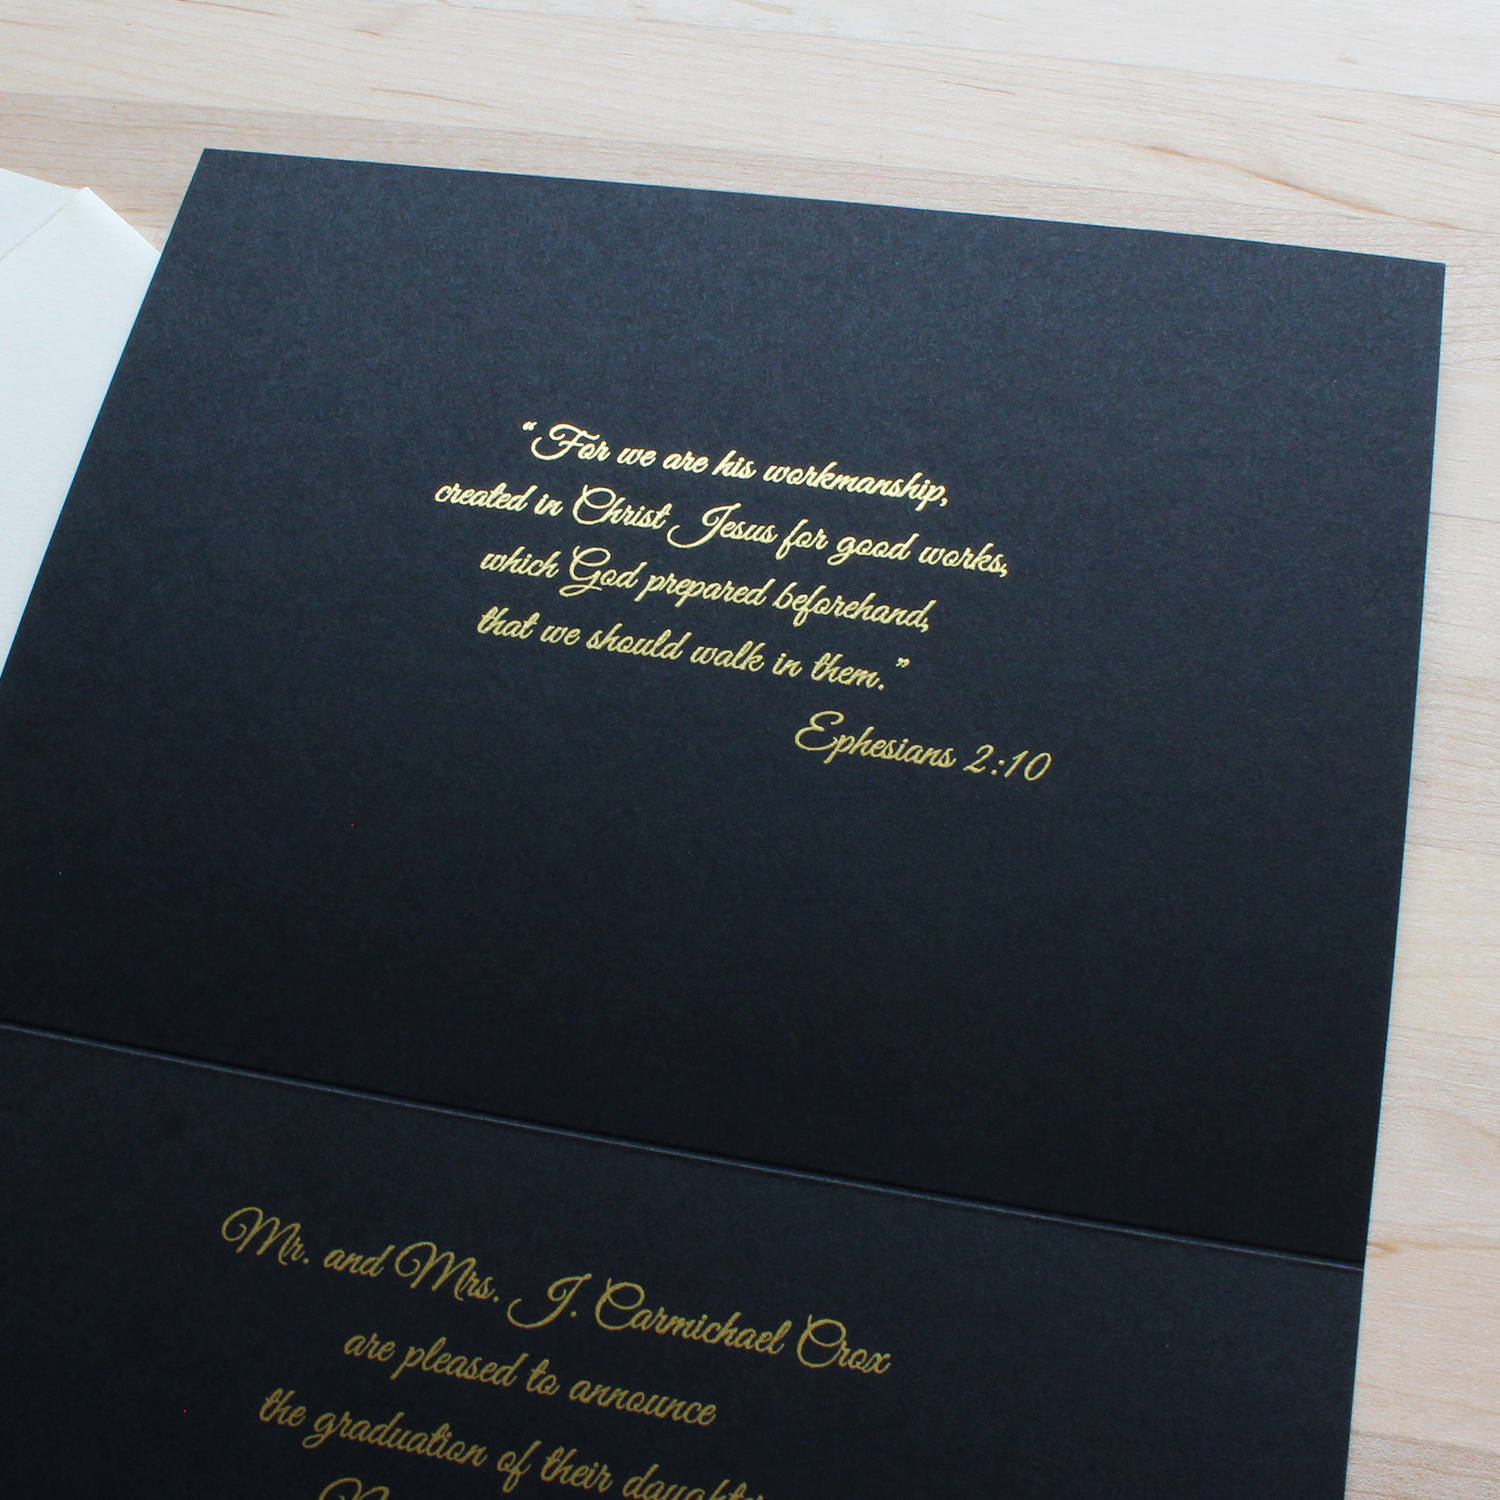 “For we are his workmanship,
created in Christ Jesus for good works,
which God prepared beforehand,
that we should walk in them.”
Ephesians 2:10
Mr. and Mrs. J. Carmichael Crox
are pleased to announce
the graduation of their daughter